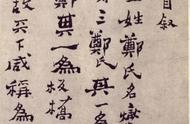 自叙
姓鄭氏名燮
三鄭氏其一為
鄭其一為板橋
故天下咸稱為